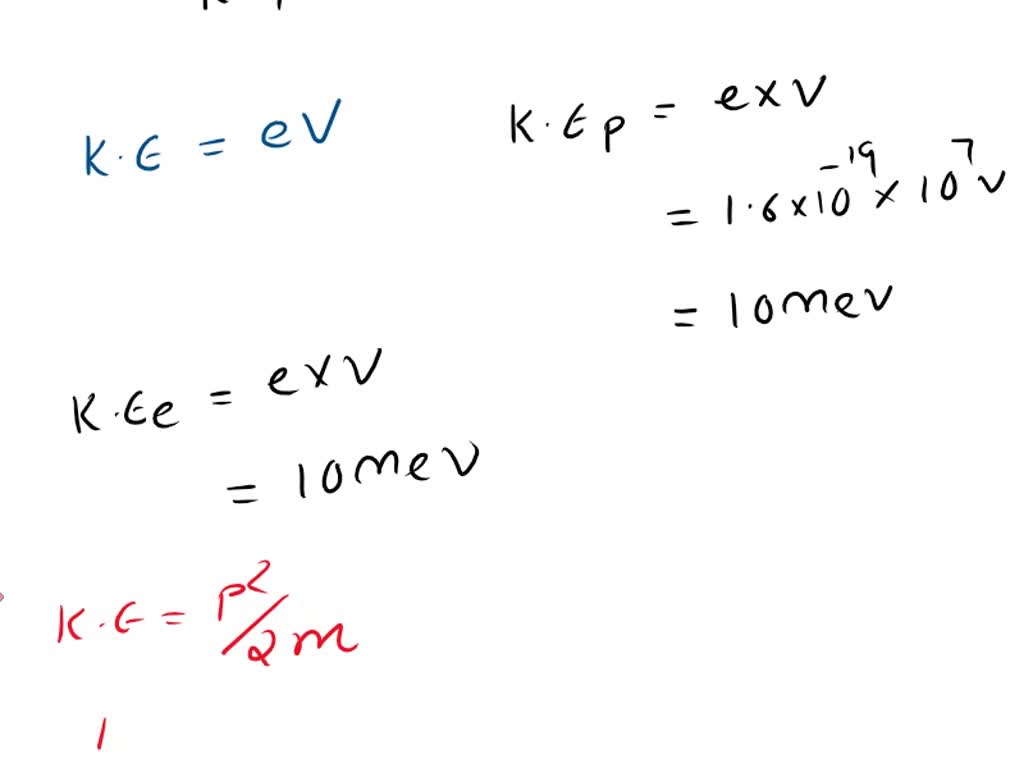 K.E = eV
K.Ep = exV
= 1.6×10^-19 × 10^7 v
= 10mev
K.Ee = exV
= 10mev
K.E = p^2/2m